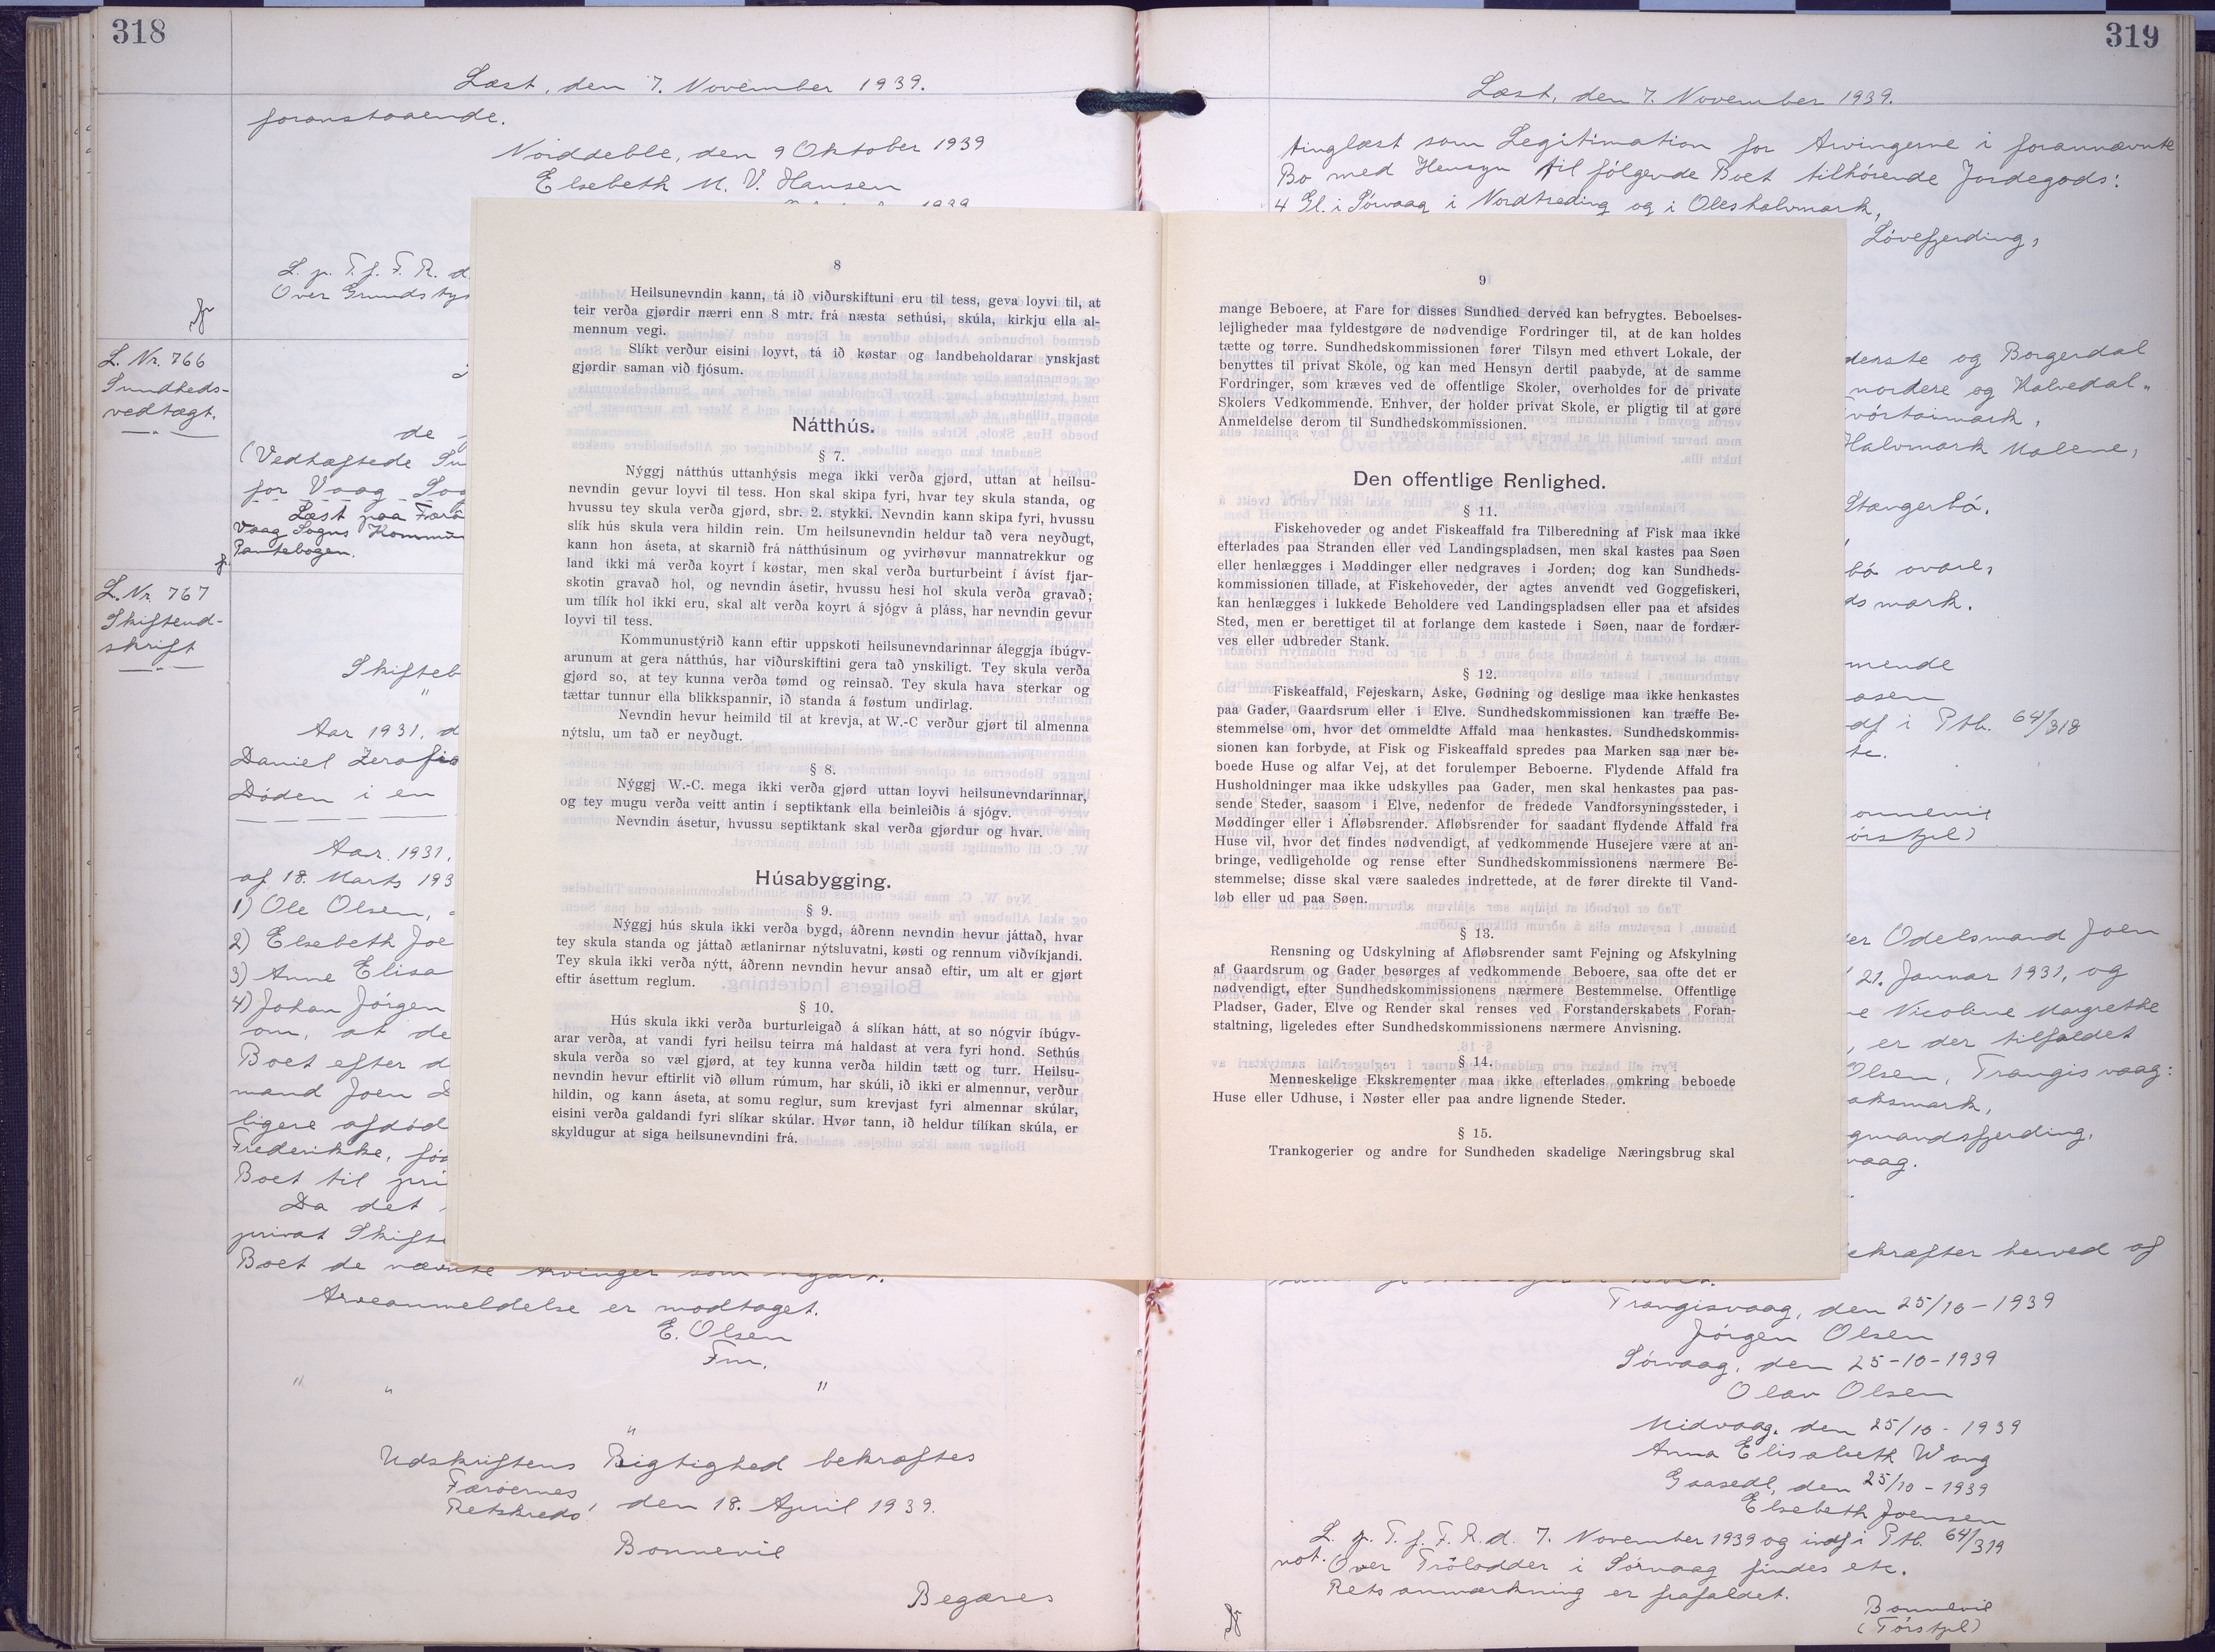 318
Læst, den 7. November 1939.
foranstaaende.
Norddeble, den 9 Oktober 1939
Elsebeth M. V. Hansen
L. p. T. f. F. R. d.
Over Grundsty
L. Nr. 766
Sundheds-
vedtægt.
de
(Vedhæftede Su
for Vaag Sog
Læst paa Færø
Vaag Sogns Kommu
Pantebogen.
L. Nr. 767
Skifteud-
skrift
Skifteb
Aar 1931, d
Daniel Zerafia
Døden i en
Aar 1931,
af 18. Marts 193
1) Ole Olsen,
2) Elsebeth Joe
3) Anne Elisa
4) Johan Jørgen
om, at de
Boet efter d
mand Joen D
ligere afdød
Frederikke, fød
Boet til pri
Da det
privat Skifte
Boet de nævnte Arvinger som
Arveanmeldelse er modtaget.
E. Olsen
Fm.
" " "
"
Udskriftens Rigtighed bekræftes
Færøernes
Retskreds, den 18. April 1939.
Bonnevil
Begæres
8
Heilsunevndin kann, tá ið viðurskiftuni eru til tess, geva loyvi til, at
teir verða gjørdir nærri enn 8 mtr. frá næsta sethúsi, skúla, kirkju ella al-
mennum vegi.
Slíkt verður eisini loyvt, tá ið køstar og landbeholdarar ynskjast
gjørdir saman við fjósum.
Nátthús.
§ 7.
Nýggj nátthús uttanhýsis mega ikki verða gjørd, uttan at heilsu-
nevndin gevur loyvi til tess. Hon skal skipa fyri, hvar tey skula standa, og
hvussu tey skula verða gjørd, sbr. 2. stykki. Nevndin kann skipa fyri, hvussu
slík hús skula vera hildin rein. Um heilsunevndin heldur tað vera neyðugt,
kann hon áseta, at skarnið frá nátthúsinum og yvirhøvur mannatrekkur og
land ikki má verða koyrt í køstar, men skal verða burturbeint í ávíst fjar-
skotin gravað hol, og nevndin ásetir, hvussu hesi hol skula verða gravað;
um tílík hol ikki eru, skal alt verða koyrt á sjógv á pláss, har nevndin gevur
loyvi til tess.
Kommunustýrið kann eftir uppskoti heilsunevndarinnar áleggja íbúgv-
arunum at gera nátthús, har viðurskiftini gera tað ynskiligt. Tey skula verða
gjørd so, at tey kunna verða tømd og reinsað. Tey skula hava sterkar og
tættar tunnur ella blikkspannir, ið standa á føstum undirlag.
Nevndin hevur heimild til at krevja, at W.-C verður gjørt til almenna
nýtslu, um tað er neyðugt.
§ 8.
Nýggj W.-C. mega ikki verða gjørd uttan loyvi heilsunevndarinnar,
og tey mugu verða veitt antin í septiktank ella beinleiðis á sjógv.
Nevndin ásetur, hvussu septiktank skal verða gjørdur og hvar.
Húsabygging.
§ 9.
Nýggj hús skula ikki verða bygd, áðrenn nevndin hevur játtað, hvar
tey skula standa og játtað ætlanirnar nýtsluvatni, køsti og rennum viðvíkjandi.
Tey skula ikki verða nýtt, áðrenn nevndin hevur ansað eftir, um alt er gjørt
eftir ásettum reglum.
§ 10.
Hús skula ikki verða burturleigað á slíkan hátt, at so nógvir íbúgv-
arar verða, at vandi fyri heilsu teirra má haldast at vera fyri hond. Sethús
skula verða so væl gjørd, at tey kunna verða hildin tætt og turr. Heilsu-
nevndin hevur eftirlit við øllum rúmum, har skúli, ið ikki er almennur, verður
hildin, og kann áseta, at somu reglur, sum krevjast fyri almennar skúlar,
eisini verða galdandi fyri slíkar skúlar. Hvør tann, ið heldur tílíkan skúla, er
skyldugur at siga heilsunevndini frá.
9
mange Beboere, at Fare for disses Sundhed derved kan befrygtes. Beboelses-
lejligheder maa fyldestgøre de nødvendige Fordringer til, at de kan holdes
tætte og tørre. Sundhedskommissionen fører Tilsyn med ethvert Lokale, der
benyttes til privat Skole, og kan med Hensyn dertil paabyde, at de samme
Fordringer, som kræves ved de offentlige Skoler, overholdes for de private
Skolers Vedkommende. Enhver, der holder privat Skole, er pligtig til at gøre
Anmeldelse derom til Sundhedskommissionen.
Den offentlige Renlighed.
§ 11.
Fiskehoveder og andet Fiskeaffald fra Tilberedning af Fisk maa ikke
efterlades paa Stranden eller ved Landingspladsen, men skal kastes paa Søen
eller henlægges i Møddinger eller nedgraves i Jorden; dog kan Sundheds-
kommissionen tillade, at Fiskehoveder, der agtes anvendt ved Goggefiskeri,
kan henlægges i lukkede Beholdere ved Landingspladsen eller paa et afsides
Sted, men er berettiget til at forlange dem kastede i Søen, naar de fordær-
ves eller udbreder Stank.
§ 12.
Fiskeaffald, Fejeskarn, Aske, Gødning og deslige maa ikke henkastes
paa Gader, Gaardsrum eller i Elve. Sundhedskommissionen kan træffe Be-
stemmelse om, hvor det ommeldte Affald maa henkastes. Sundhedskommis-
sionen kan forbyde, at Fisk og Fiskeaffald spredes paa Marken saa nær be-
boede Huse og alfar Vej, at det forulemper Beboerne. Flydende Affald fra
Husholdninger maa ikke udskylles paa Gader, men skal henkastes paa pas-
sende Steder, saasom i Elve, nedenfor de fredede Vandforsyningssteder, i
Møddinger eller i Afløbsrender. Afløbsrender for saadant flydende Affald fra
Huse vil, hvor det findes nødvendigt, af vedkommende Husejere være at an-
bringe, vedligeholde og rense efter Sundhedskommissionens nærmere Be-
stemmelse; disse skal være saaledes indrettede, at de fører direkte til Vand-
løb eller ud paa Søen.
§ 13.
Rensning og Udskylning af Afløbsrender samt Fejning og Afskylning
af Gaardsrum og Gader besørges af vedkommende Beboere, saa ofte det er
nødvendigt, efter Sundhedskommissionens nærmere Bestemmelse. Offentlige
Pladser, Gader, Elve og Render skal renses ved Forstanderskabets Foran-
staltning, ligeledes efter Sundhedskommissionens nærmere Anvisning.
§ 14.
Menneskelige Ekskrementer maa ikke efterlades omkring beboede
Huse eller Udhuse, i Nøster eller paa andre lignende Steder.
§ 15.
Trankogerier og andre for Sundheden skadelige Næringsbrug skal
319
Læst, den 7. November 1939.
tinglæst som Legitimation for Arvingerne i forannævnte
Bo med Hensyn til følgende Boet tilhørende Jordegods:
4 Gl. i Sørvaag i Nordtreding og i Oleshalvmark,
Løvefjerding,
derste og Borgerdal
nordere og Halvedal"
vórtaimark,
Halvmark Malene,
Stangerbø.
bø ovare,
ds mark.
mende
asen
df i Ptb. 64/318
te.
onnevil
ørstful)
er Odelsmand Joen
21. Januar 1931, og
ne Nicoline Margrethe
, er der tilfaldet
Olsen, Trangisvaag:
aksmark,
gmandsfjerding,
vaag.
ekræfter herved af
Trangisvaag, den 25/10-1939
Jørgen Olsen
Sørvaag, den 25-10-1939
Olav Olsen
Midvaag, den 25/10-1939
Anna Elisabeth Wang
Gaasedl, den 25/10-1939
Elsebeth Joensen
L. p. T. f. F. R. d. 7. November 1939 og indf i Ptb. 64/319
not. Over Trölodder i Sørvaag findes etc.
Retsanmærkning er frafaldet.
Bonnevil
(Tórsful)